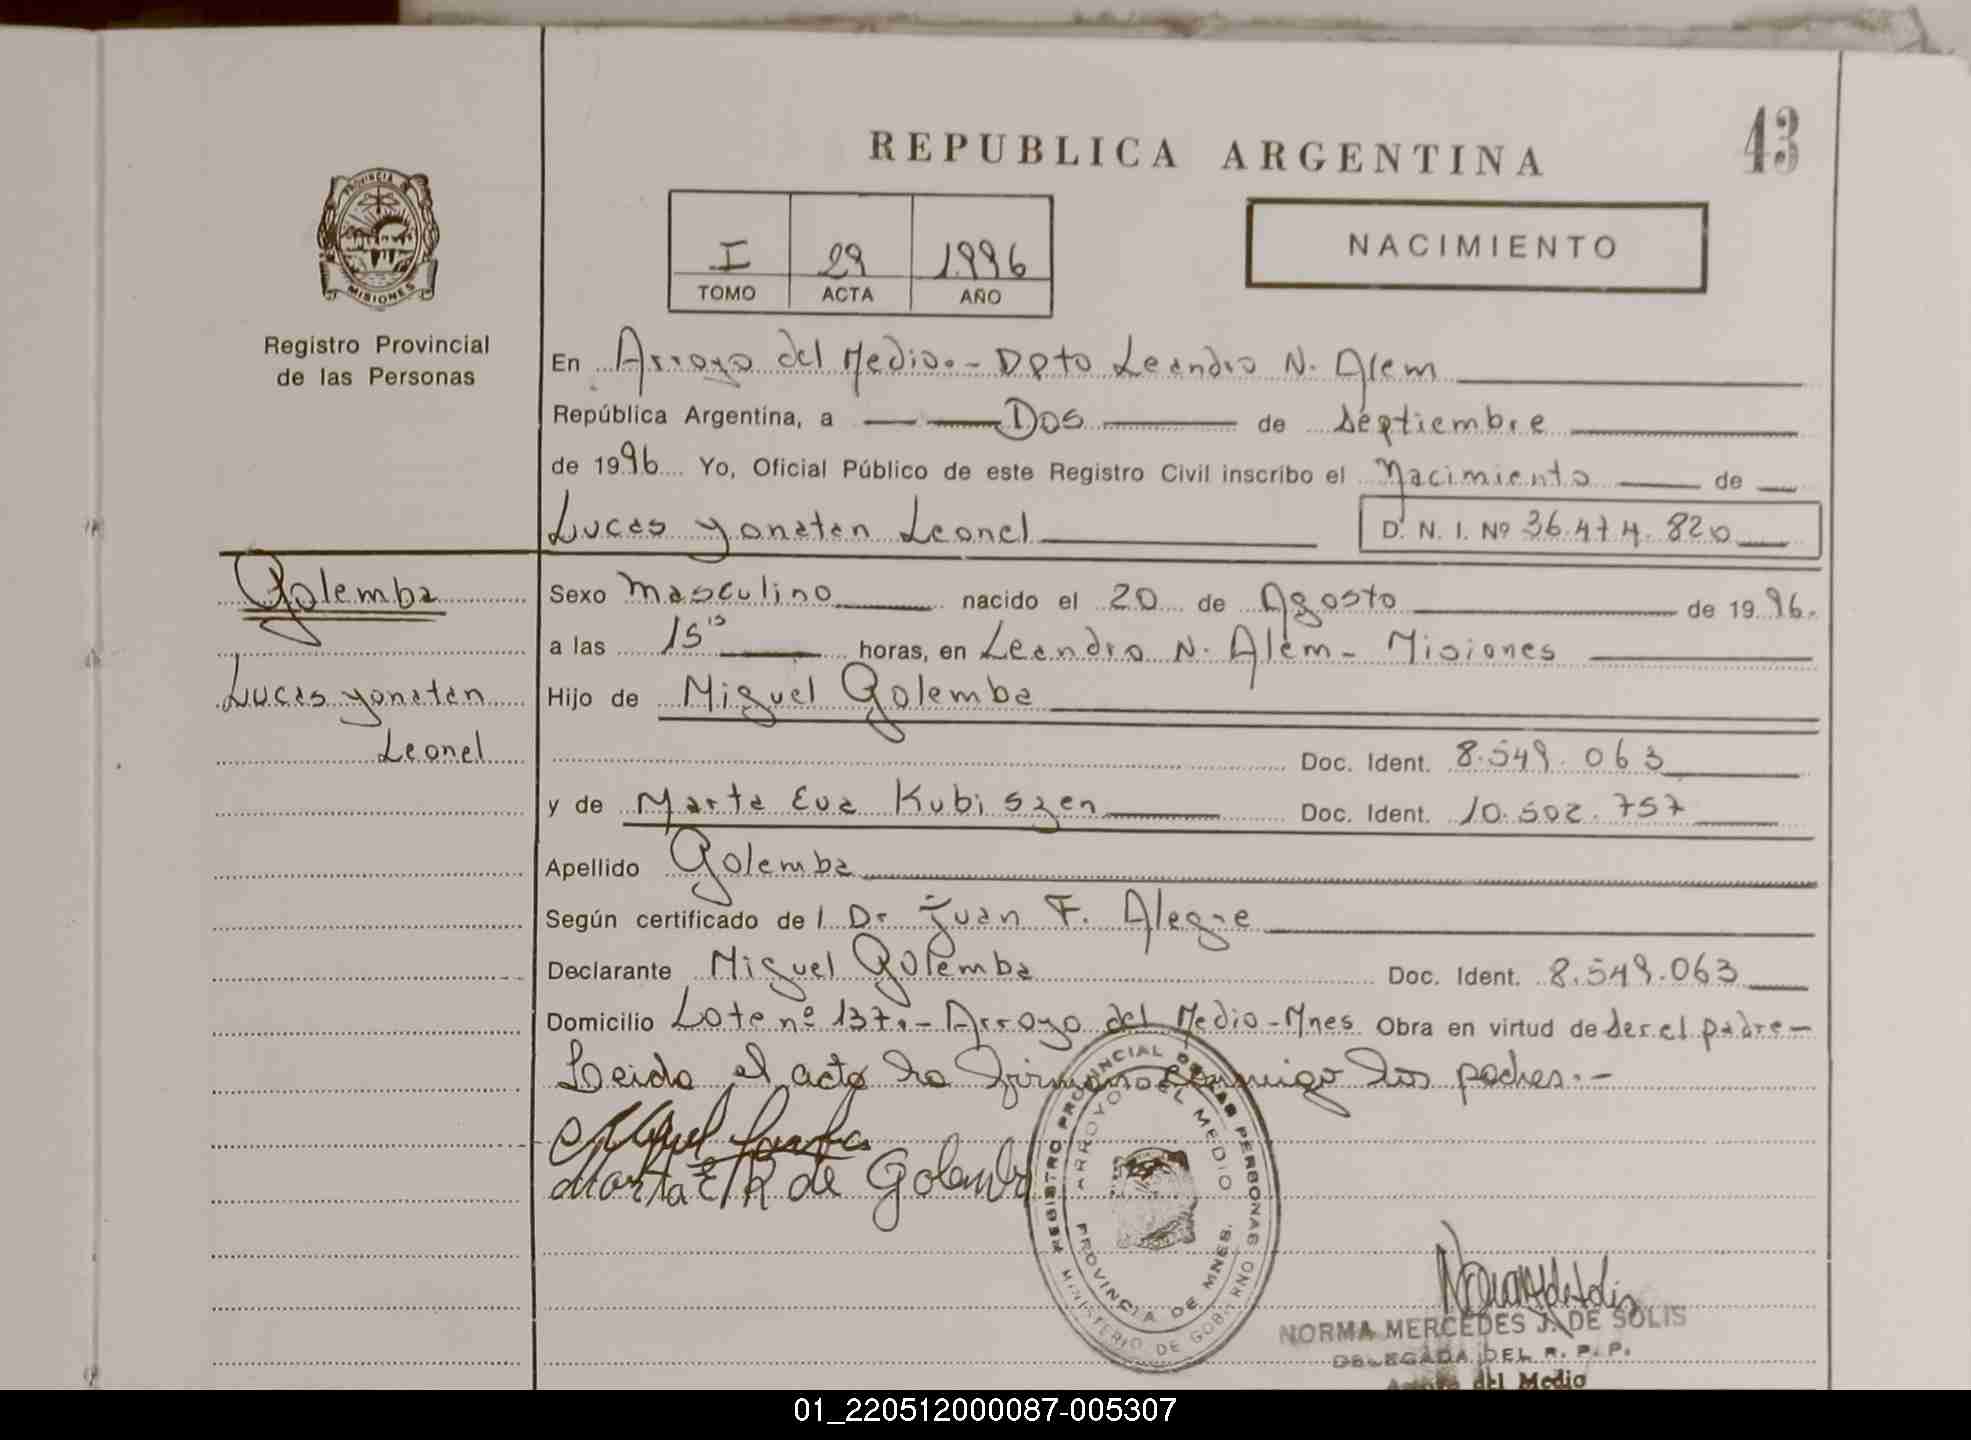 43
REPUBLICA ARGENTINA
PROVINCIA DE
MISIONES
Registro Provincial
de las Personas
I 29 1996
TOMO ACTA AÑO
NACIMIENTO
En Arroyo del Medio.- Dpto Leandro N. Alem
República Argentina, a Dos de septiembre
de 1996 Yo, Oficial Público de este Registro Civil inscribo el Nacimiento de
Lucas yonatan Leonel D. N. I. Nº 36.474.820
Golemba
Lucas yonatan
Leonel
Sexo Masculino nacido el 20 de Agosto de 1996.
a las 15 15 horas, en Leandro N. Alem - Misiones
Hijo de Miguel Golemba
Doc. Ident. 8.549.063
y de Marta Eva Kubiszen Doc. Ident. 10.502.757
Apellido Golemba
Según certificado de l Dr Juan F. Alegre
Declarante Miguel Golemba Doc. Ident. 8.549.063
Domicilio Lote nº 137.- Arroyo del Medio - Mnes Obra en virtud de ser el padre-
Leida el acta la firman conmigo los padres.-
Marta E K de Golemba
REGISTRO PROVINCIAL DE LAS PERSONAS
ARROYO DEL MEDIO
PROVINCIA DE MNES.
MINISTERIO DE GOBIERNO
NORMA MERCEDES J. DE SOLIS
DELEGADA DEL R. P. P.
Arroyo del Medio
01_220512000087-005307